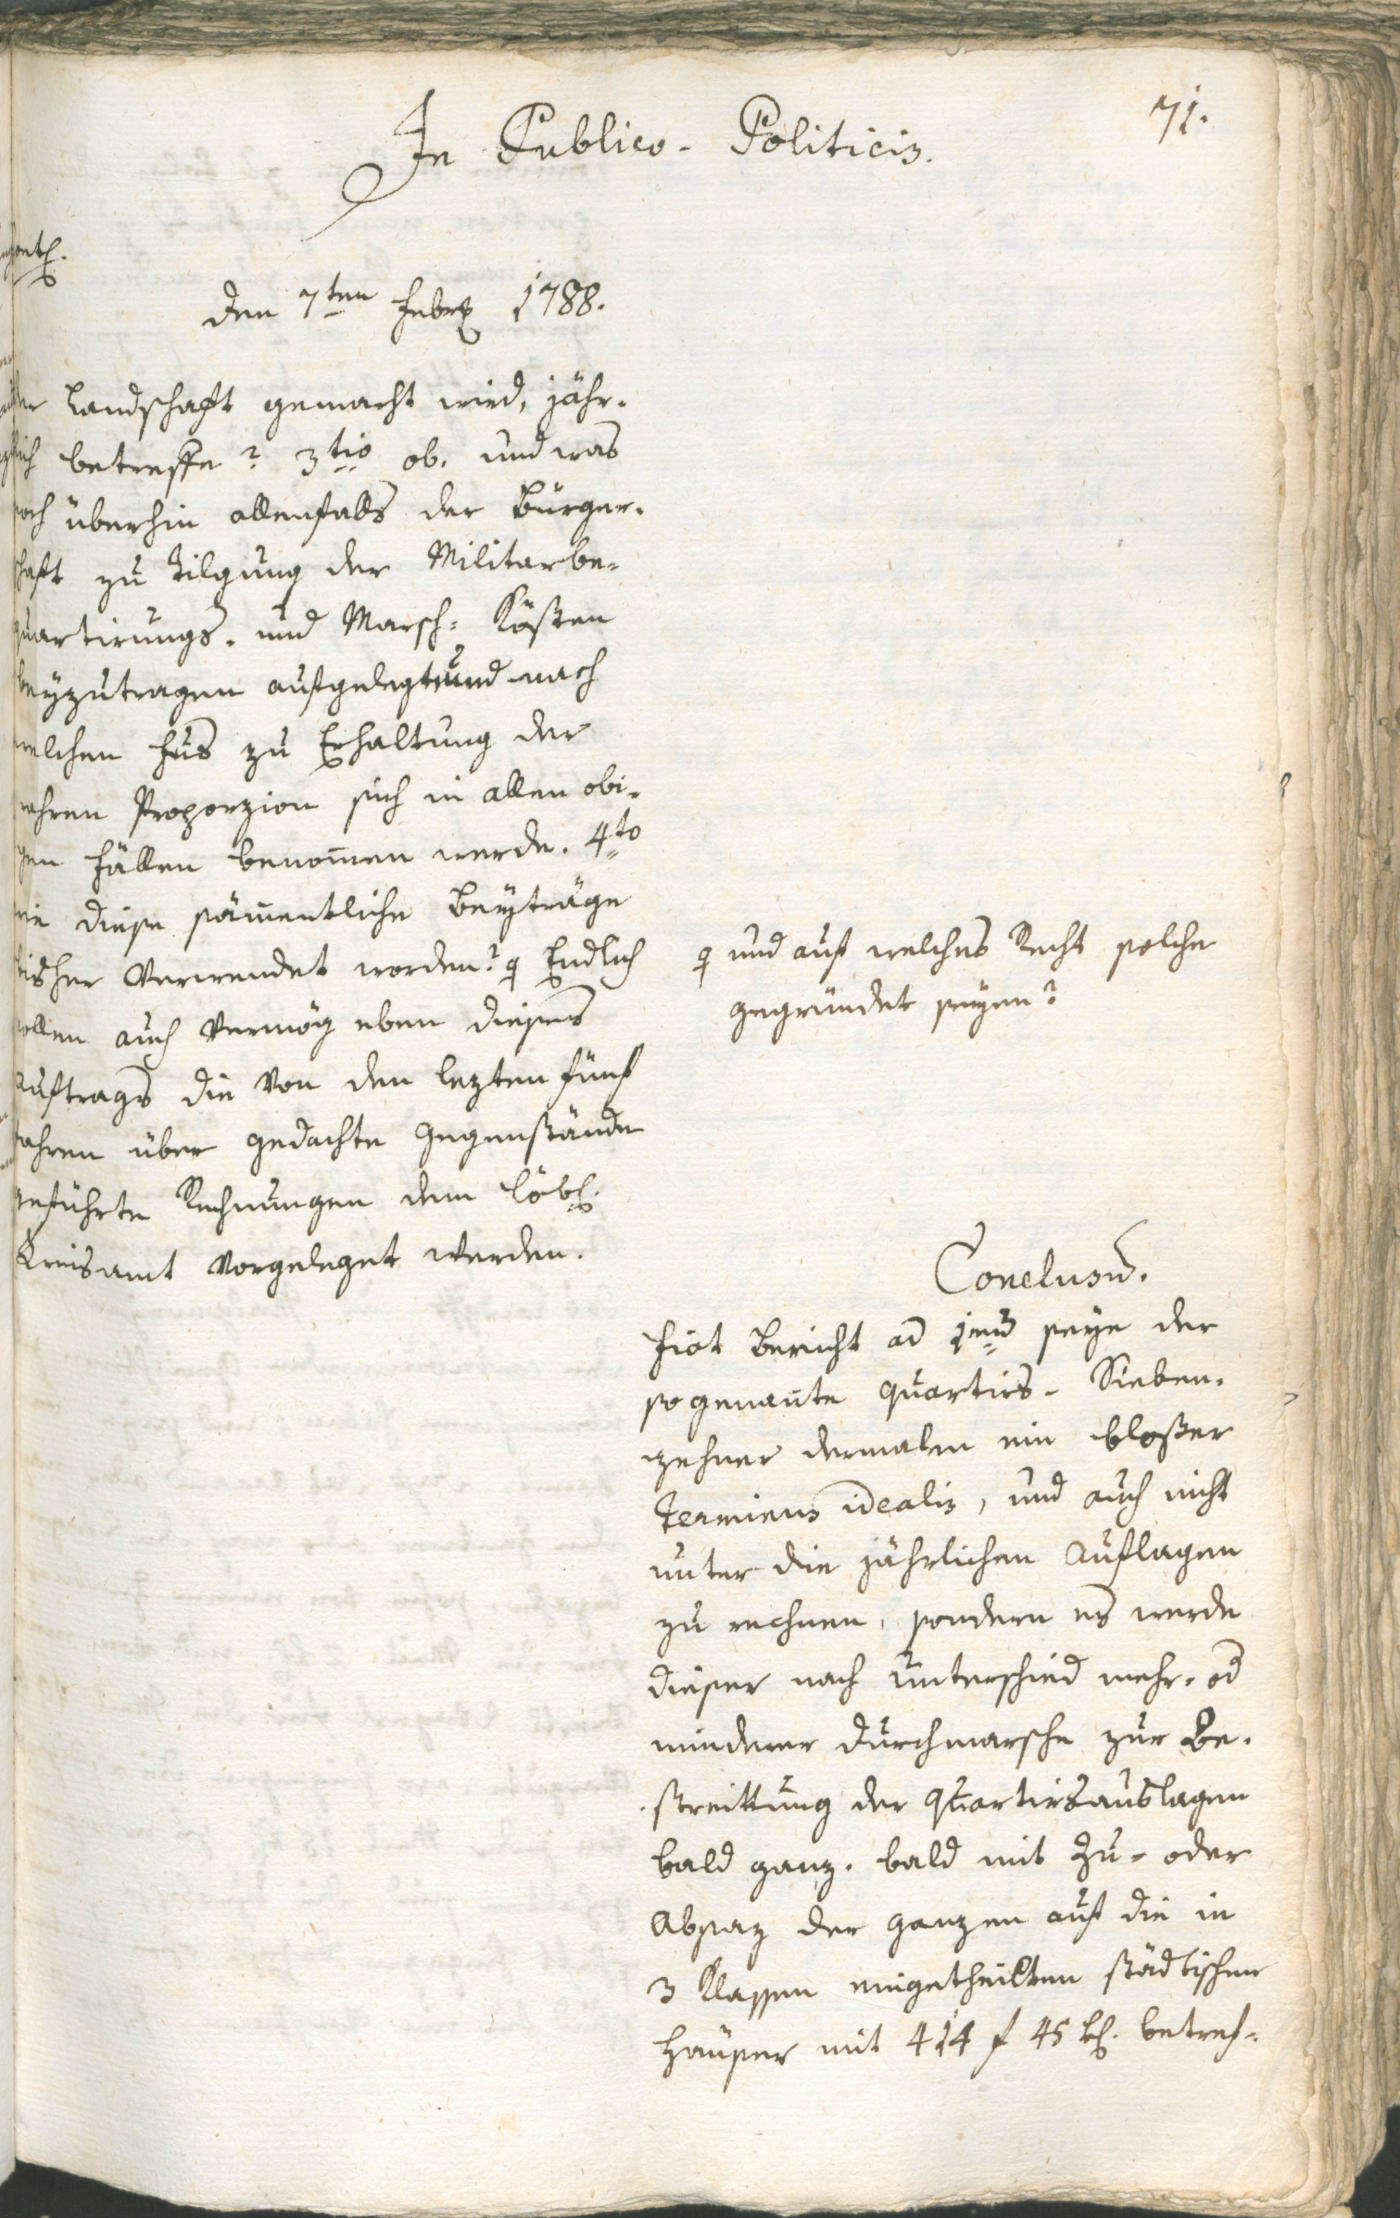 71.
In Publico-Politicis.
den 7ten Febr 1788.
der Landschaft gemacht wird, jähr-
lich betreffe? 3tio ob, und was
noch überhin allenfalls der Bürger-
schaft zu Tilgung der Militarbe-
quartirungs- und Marsch- Kösten
beyzutragen aufgelegt und nach
welchen Fus zu Erhaltung der
wahren Proporzion sich in allen obi-
gen Fällen benommen werde. 4to
wie diese sämentliche Beyträge
bisher verwendet worden? Endlich
sollen auch vermög eben dieses
Auftrags die von den lezten fünf
Jahren über gedachte Gegenstände
geführte Rechnungen dem Löbl.
Kreisamt vorgeleget werden.
und auf welches Recht solche
gegründet seyen?
Conclusū.
Fiat Bericht ad 1mū seye der
so genante quartirs- Sieben-
zehner dermalen ein bloßer
terminus idealis, und auch nicht
unter die jährlichen Auflagen
zu rechnen, sondern es werde
dieser nach Unterschied mehr- od
minderer Durchmarsche zur Be-
streittung der Quartirsauslagen
bald ganz, bald mit Zu- oder
Absaz der ganzen auf die in
3 Klassen eingetheilten städtischen
Häuser mit 414 f 45 kr. betref-